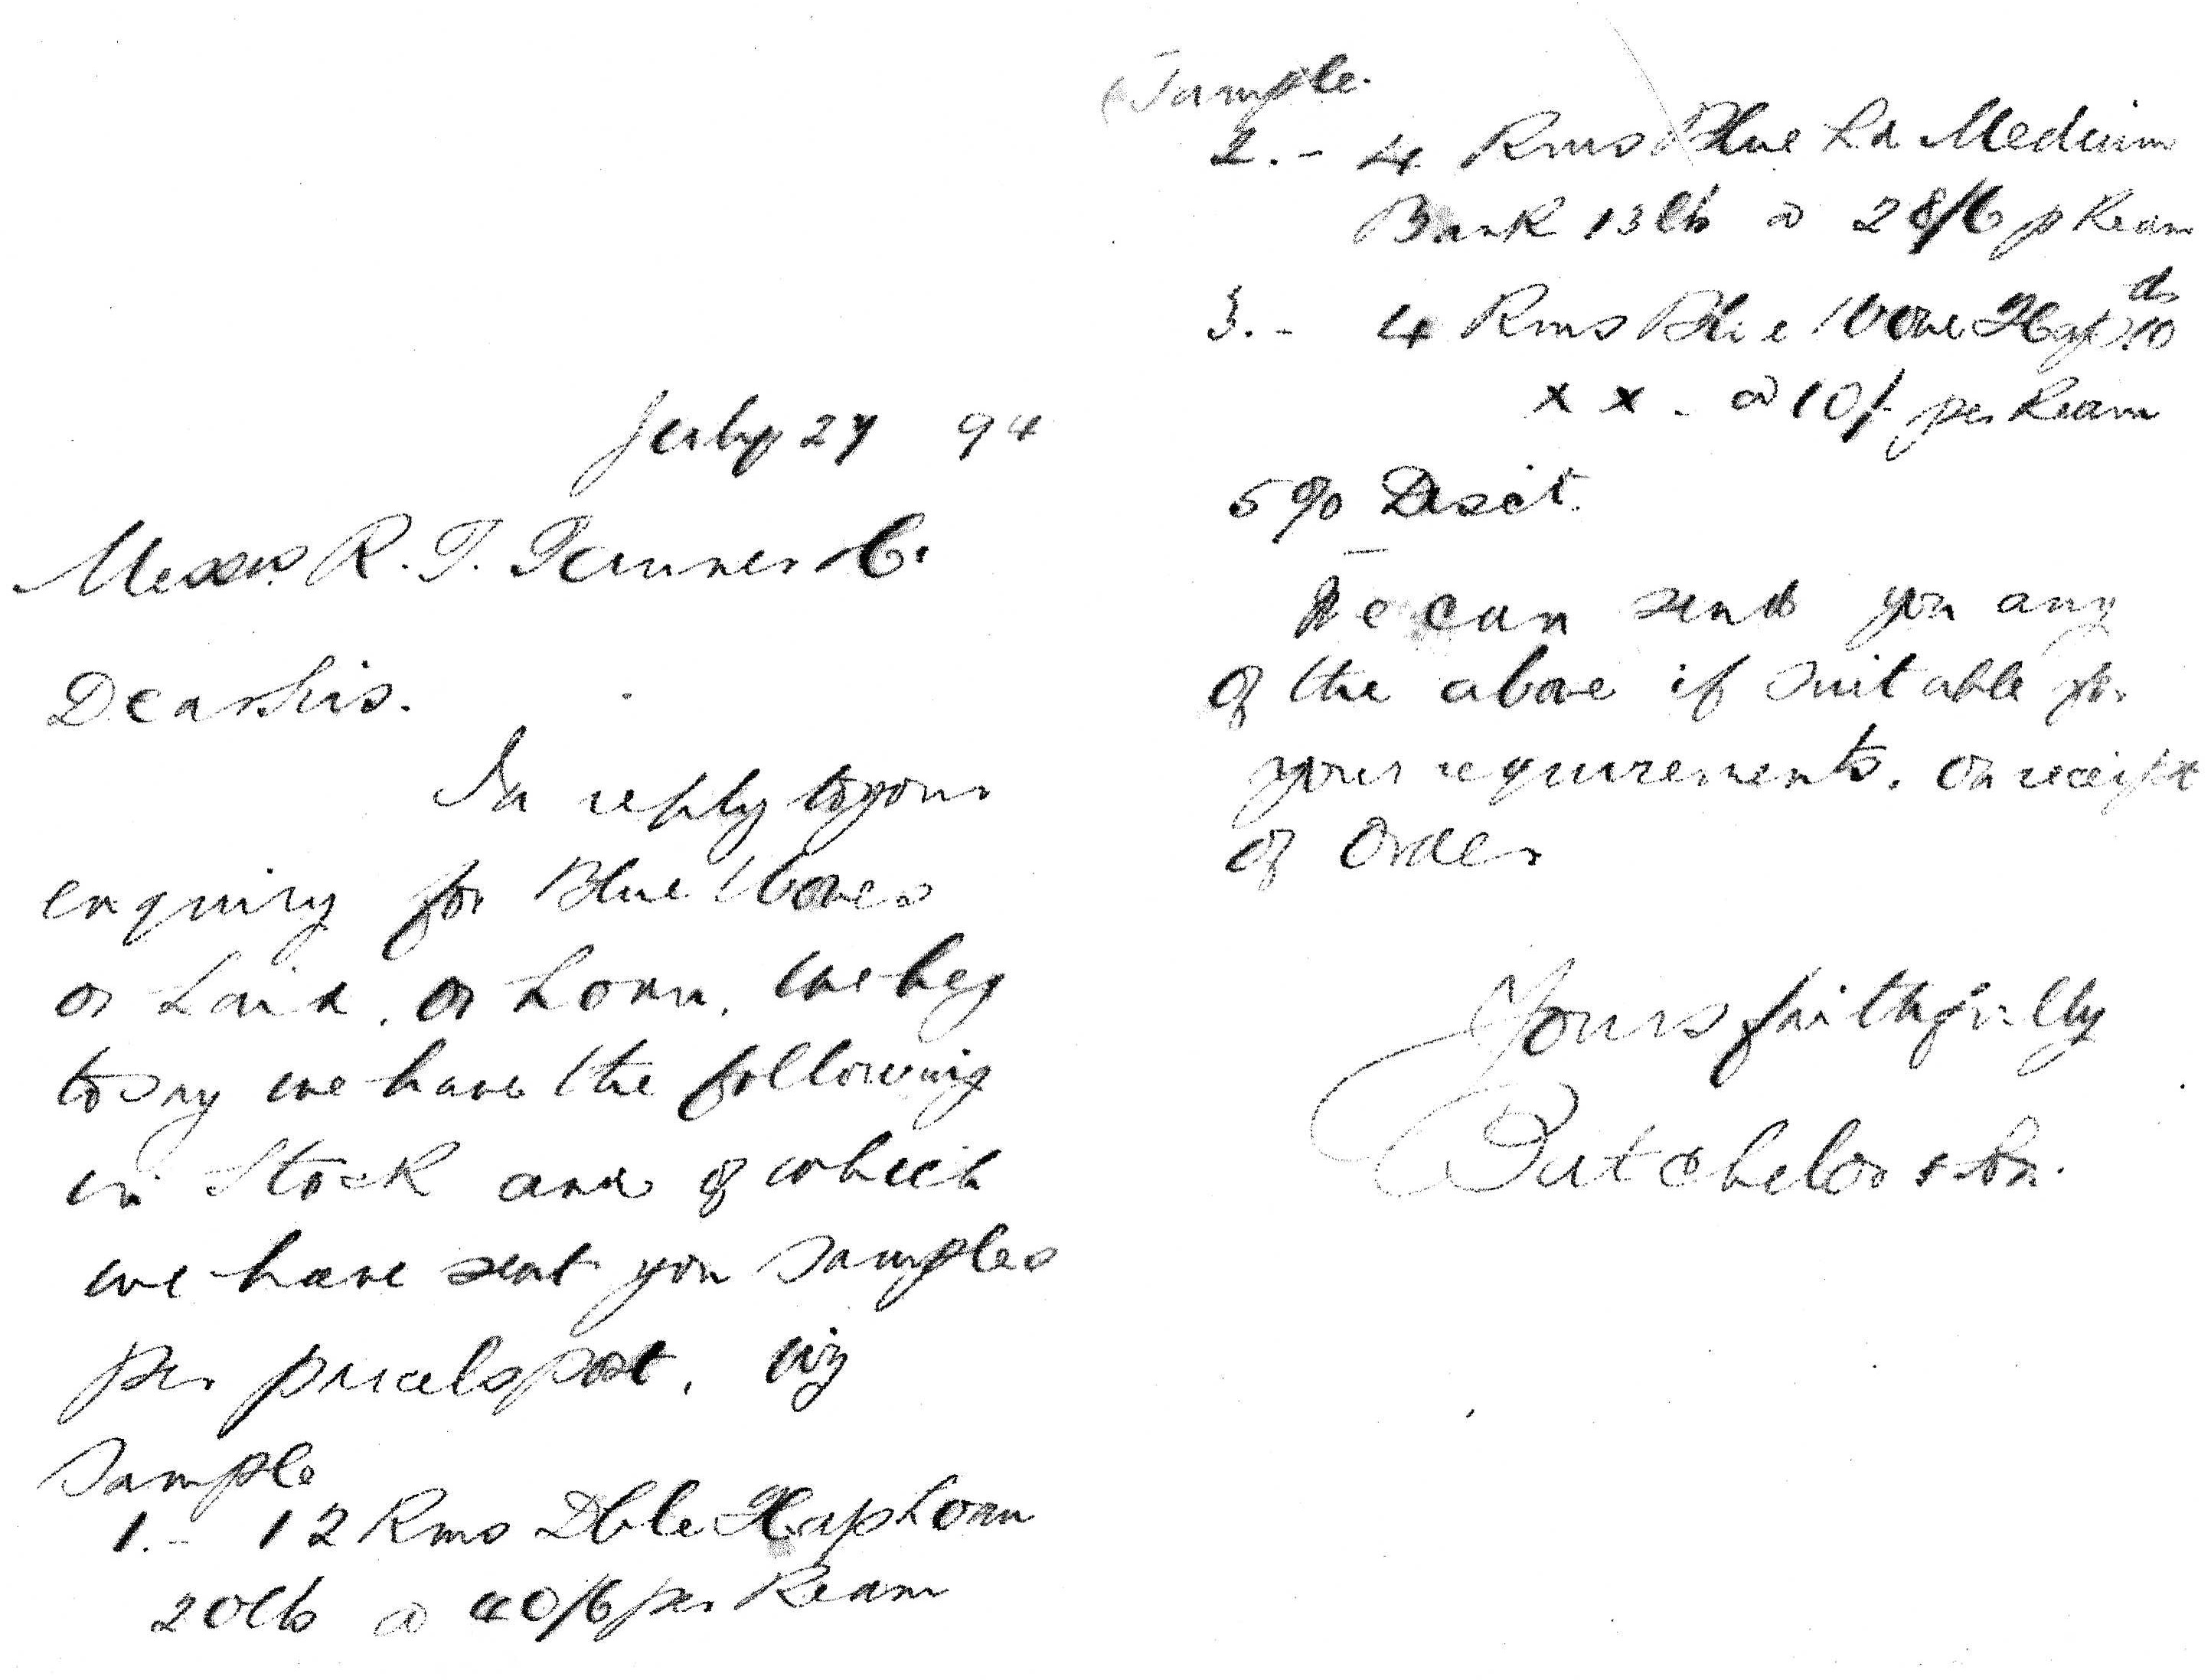 July 27 94
Messrs R. T. Tanner & Co.
Dear Sirs.
In reply to your
enquiry for Blue Woves
or Laid, or Loan, we beg
to say we have the following
in Stock and of which
we have sent you samples
per parcels post, viz
Sample
1. - 12 Rms Dble Fcap Loan
20lb @ 40/6 per Ream
Sample
2. - 4 Rms Blue Ld Medium
Bank 13lb @ 28/6 p Ream
3. - 4 Rms Blue Wove
x x - @ 10/- per Ream
5% Disct.
We can send you any
of the above if suitable for
your requirements. on receipt
of Order
Yours faithfully
Batchelor & Son.